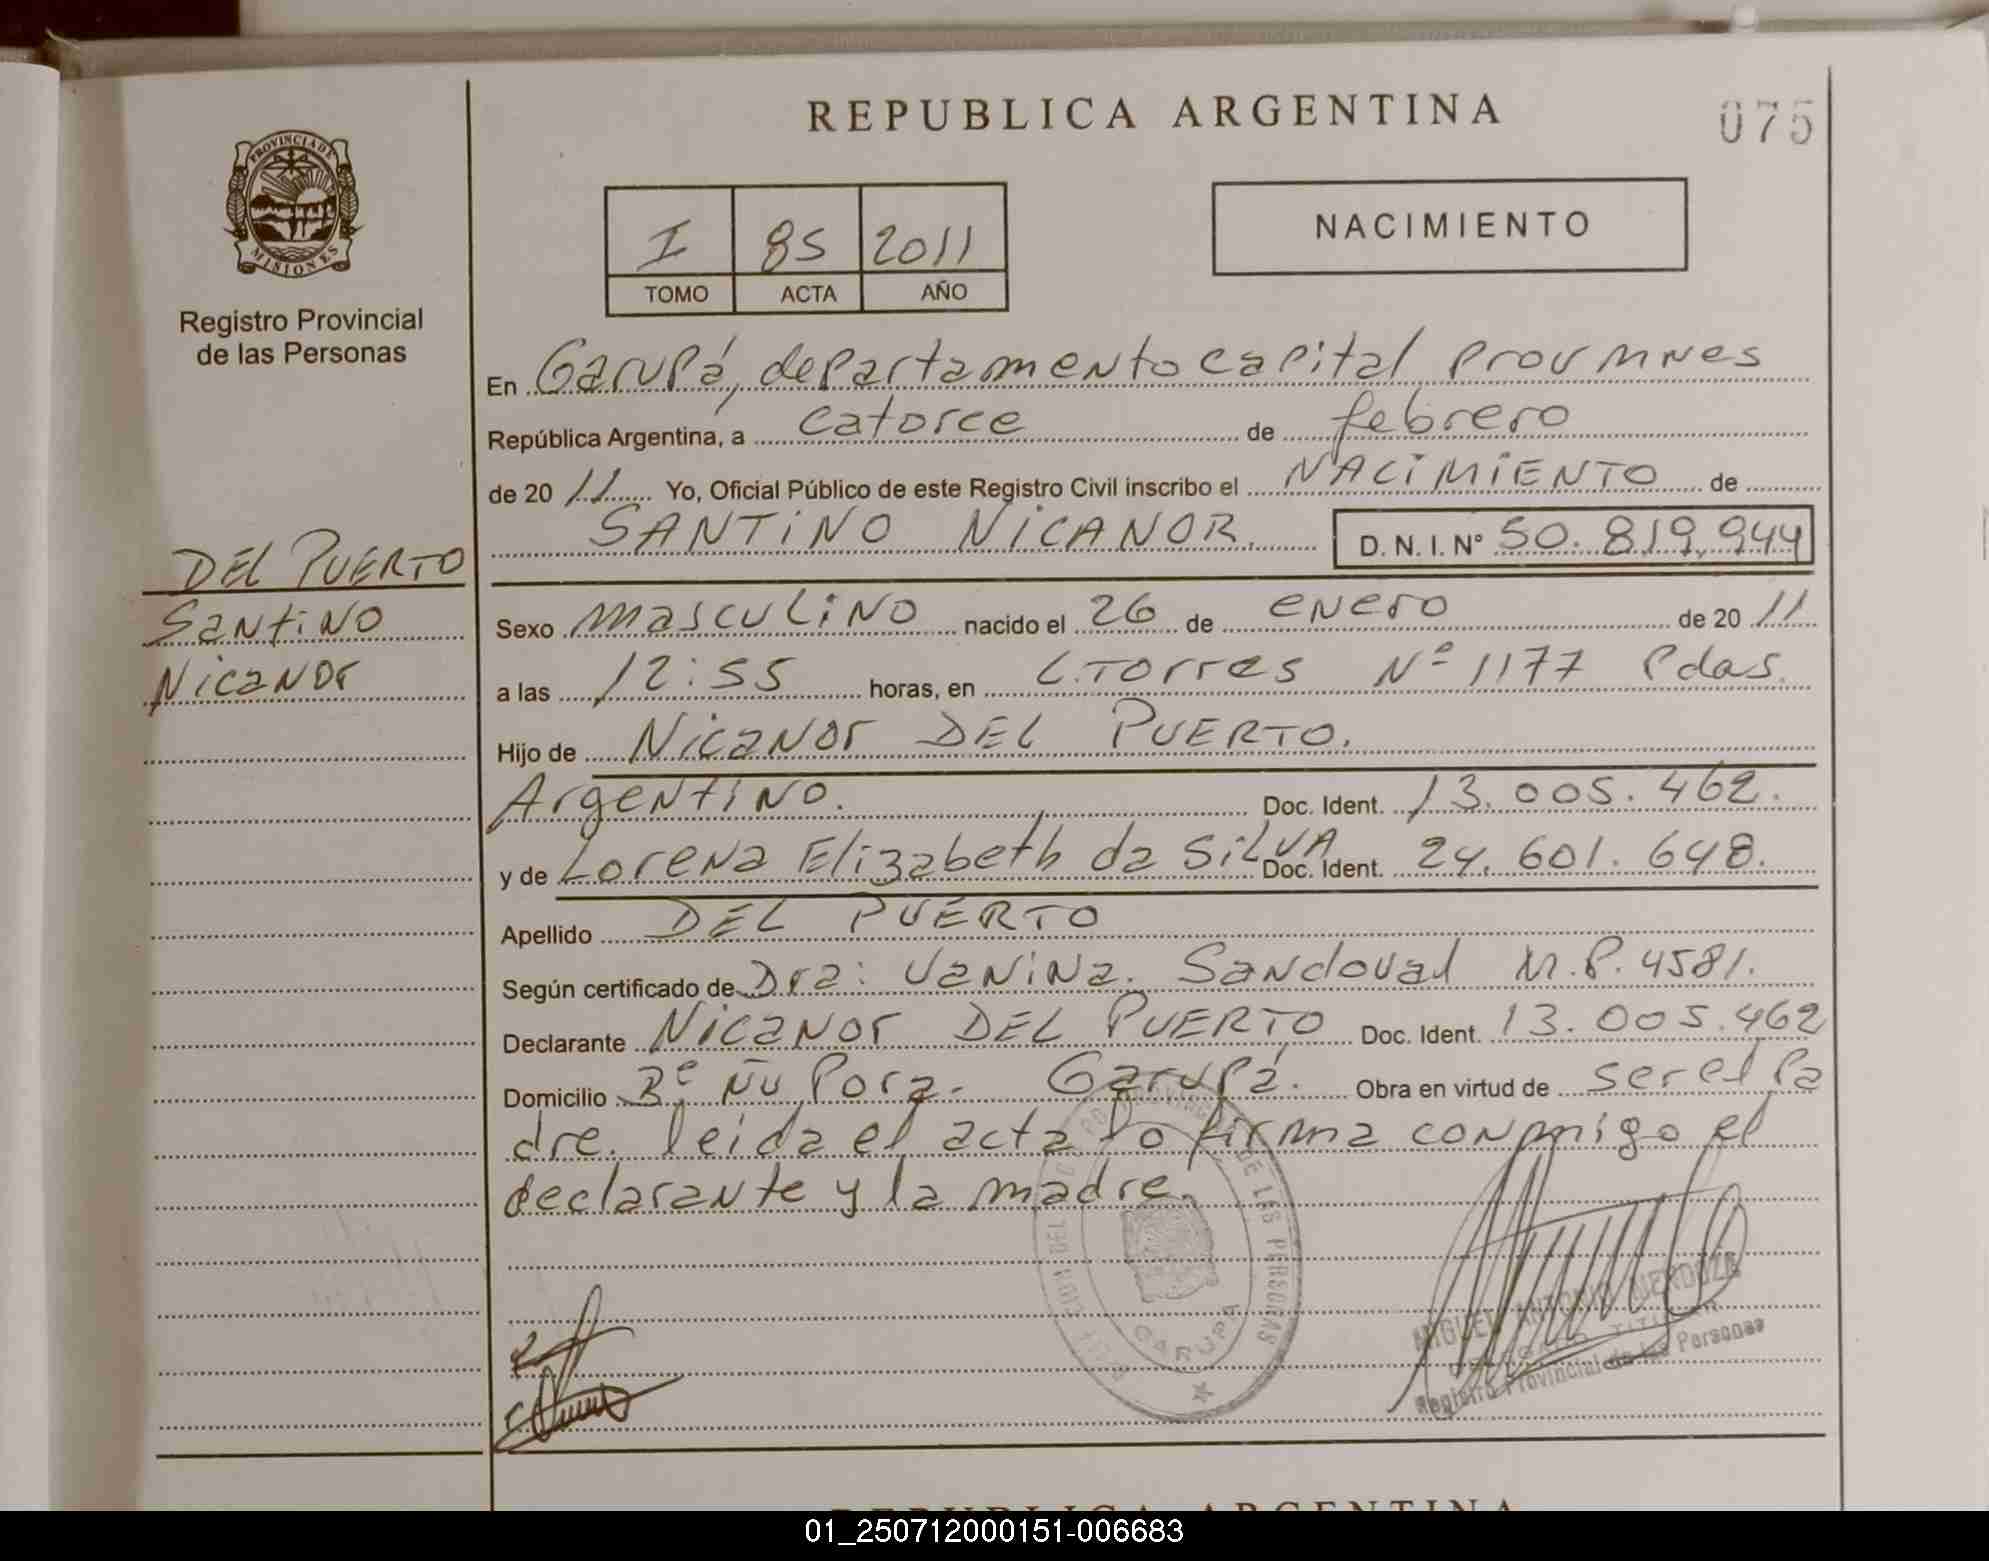 REPUBLICA ARGENTINA
075
PROVINCIA DE
MISIONES
Registro Provincial
de las Personas
I 85 2011
TOMO ACTA AÑO
NACIMIENTO
En Garupá, departamento capital Prov Mnes
República Argentina, a catorce de febrero
de 20 11 Yo, Oficial Público de este Registro Civil inscribo el NACIMIENTO de
SANTINO NICANOR. D. N. I. N° 50.819.944
DEL PUERTO
Santino
Nicanor
Sexo masculino nacido el 26 de enero de 20 11
a las 12:55 horas, en L.Torres N° 1177 Pdas.
Hijo de Nicanor DEL PUERTO.
Argentino. Doc. Ident. 13.005.462.
y de Lorena Elizabeth da SilVA Doc. Ident. 24.601.648.
Apellido DEL PUERTO
Según certificado de Dra: Vanina. Sandoval M.P. 4581.
Declarante Nicanor DEL PUERTO Doc. Ident. 13.005.462
Domicilio B° Ñu Pora. Garupá. Obra en virtud de ser el Pa
dre. leida el acta lo firma conmigo el
declarante y la madre.
DE LAS PERSONAS
GARUPA
MIGUEL ANTONIO MENDOZA
TITULAR
Registro Provincial de las Personas
REPUBLICA ARGENTINA
01_250712000151-006683